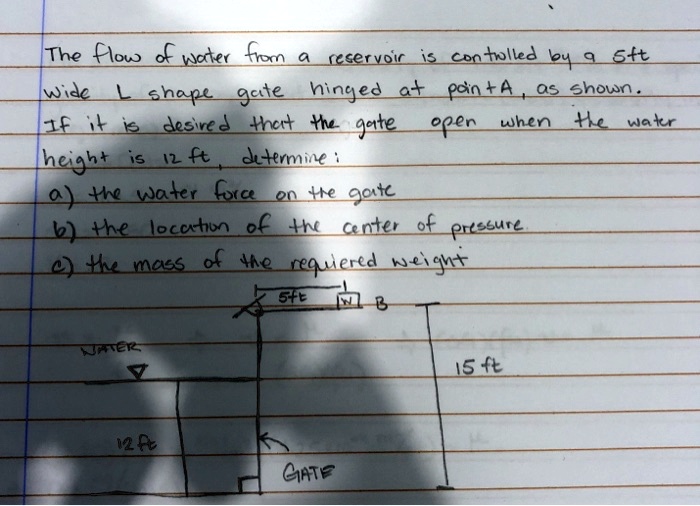 The flow of water from a reservoir is controlled by a 5ft
wide L shape gate hinged at point A, as shown.
If it is desired that the gate open when the water
height is 12 ft, determine:
a) the water force on the gate
b) the location of the center of pressure.
c) the mass of the requiered weight
5ft W B
WATER
15 ft
12 ft
GATE